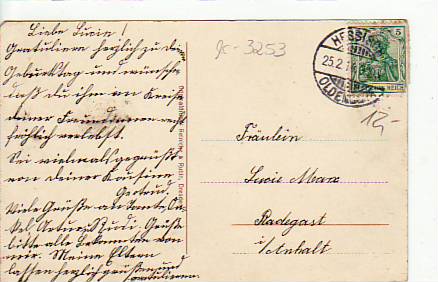 Liebe Lucie!
Gratuliere herzlich zu dei
Geburtstag und wünsche
daß du ihn im Kreise
deiner Freundinnen recht
fröhlich verlebst.
Sei vielmals gegrüßt
von deiner Kousine
Gertrud.
Viele Grüße an Tante, On-
kel, Artur, Rudi. Grüße
bitte alle Bekannten von
mir. Meine Eltern
lassen herzlich grüßen und
gratulieren.
gc-3253
HESSISCH
25.2.1
OLDENDORF
5
REICH
12,-
Fräulein
Lucie Marx
Radegast
i/Anhalt